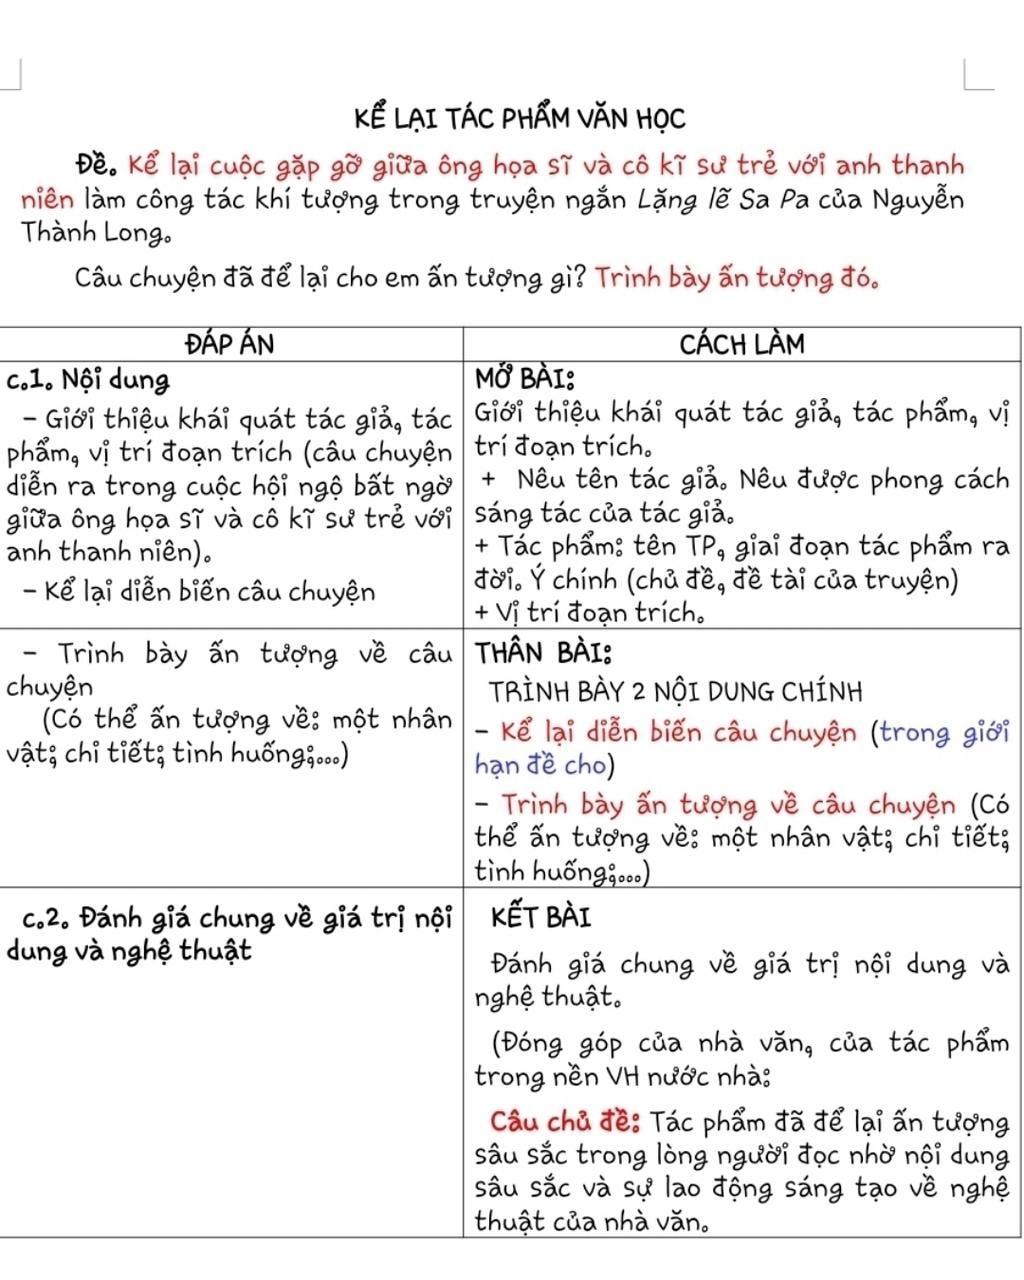 KỂ LẠI TÁC PHẨM VĂN HỌC
Đề. Kể lại cuộc gặp gỡ giữa ông họa sĩ và cô kĩ sư trẻ với anh thanh
niên làm công tác khí tượng trong truyện ngắn Lặng lẽ Sa Pa của Nguyễn
Thành Long.
Câu chuyện đã để lại cho em ấn tượng gì? Trình bày ấn tượng đó.
ĐÁP ÁN
c.1. Nội dung
- Giới thiệu khái quát tác giả, tác
phẩm, vị trí đoạn trích (câu chuyện
diễn ra trong cuộc hội ngộ bất ngờ
giữa ông họa sĩ và cô kĩ sư trẻ với
anh thanh niên).
- Kể lại diễn biến câu chuyện
CÁCH LÀM
MỞ BÀI:
Giới thiệu khái quát tác giả, tác phẩm, vị
trí đoạn trích.
+ Nêu tên tác giả. Nêu được phong cách
sáng tác của tác giả.
+ Tác phẩm: tên TP, giai đoạn tác phẩm ra
đời. Ý chính (chủ đề, đề tài của truyện)
+ Vị trí đoạn trích.
- Trình bày ấn tượng về câu
chuyện
(Có thể ấn tượng về: một nhân
vật; chi tiết; tình huống;...)
THÂN BÀI:
TRÌNH BÀY 2 NỘI DUNG CHÍNH
- Kể lại diễn biến câu chuyện (trong giới
hạn đề cho)
- Trình bày ấn tượng về câu chuyện (Có
thể ấn tượng về: một nhân vật; chi tiết;
tình huống;...)
c.2. Đánh giá chung về giá trị nội
dung và nghệ thuật
KẾT BÀI
Đánh giá chung về giá trị nội dung và
nghệ thuật.
(Đóng góp của nhà văn, của tác phẩm
trong nền VH nước nhà:
Câu chủ đề: Tác phẩm đã để lại ấn tượng
sâu sắc trong lòng người đọc nhờ nội dung
sâu sắc và sự lao động sáng tạo về nghệ
thuật của nhà văn.